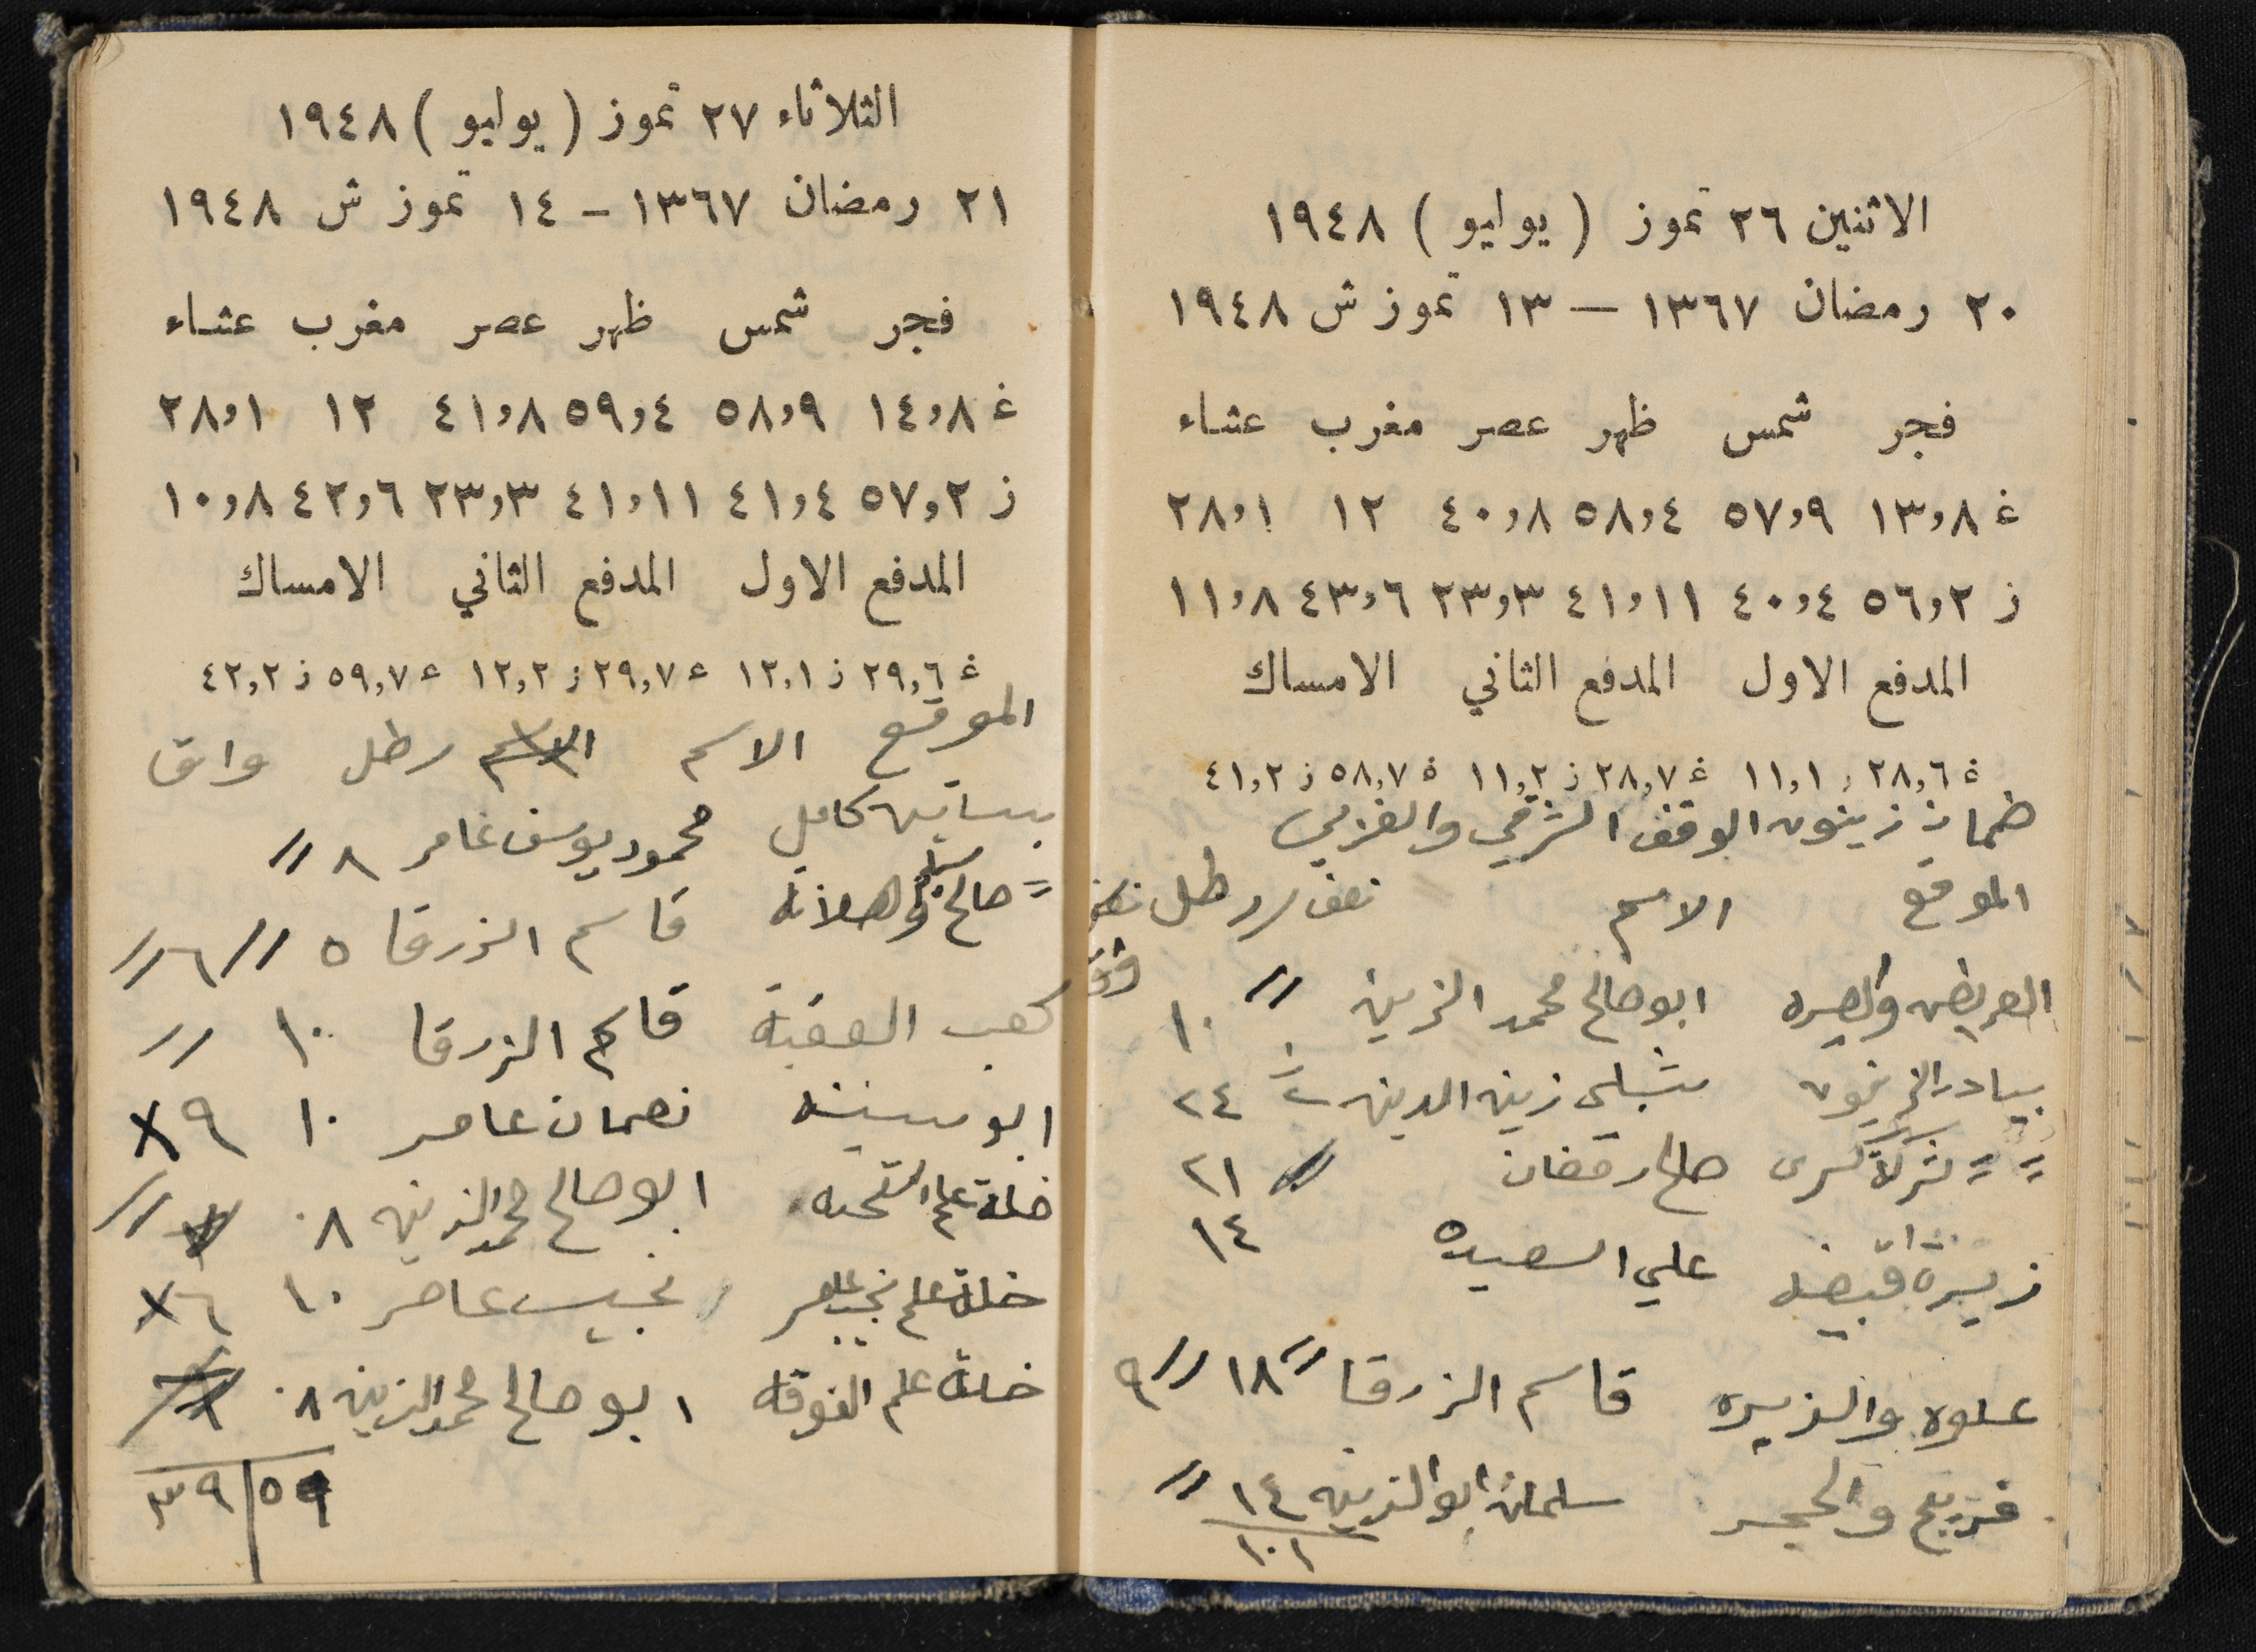 الاثنين ٢٦ تموز ( يوليو ) ١٩٤٨
٢٠ رمضان ١٣٦٧ — ١٣ تموز ش ١٩٤٨
فجر شمس ظهر عصر مغرب عشاء
غ ١٣,٨ ٥٧,٩ ٥٨,٤ ٤٠,٨ ١٢ ٢٨,١
ز ٥٦,٢ ٤٠,٤ ٤١,١١ ٢٣,٣ ٤٣,٦ ١١,٨
المدفع الاول المدفع الثاني الامساك
غ ٢٨,٦ ز ١١,١ غ ٢٨,٧ ز ١١,٢ غ ٥٨,٧ ز ٤١,٢
ضمان زيتون الوقف الشرقي والغربي
الموقع الاسم رطل
العريض ابو صالح محمد الزين // ١٠
بيادر الزيتون شبلي زين الدين ٢٤
= = صالح رمضان ٢١
علي السعيده ١٤
علوه والزيره قاسم الزرقا // ١٨ // ٩
والحجر سلمان ابو الزين ١٤ //
١٠١
الثلاثاء ٢٧ تموز ( يوليو ) ١٩٤٨
٢١ رمضان ١٣٦٧ - ١٤ تموز ش ١٩٤٨
فجر شمس ظهر عصر مغرب عشاء
غ ١٤,٨ ٥٨,٩ ٥٩,٤ ٤١,٨ ١٢ ٢٨,١
ز ٥٧,٢ ٤١,٤ ٤١,١١ ٢٣,٣ ٤٢,٦ ١٠,٨
المدفع الاول المدفع الثاني الامساك
غ ٢٩,٦ ز ١٢,١ غ ٢٩,٧ ز ١٢,٢ غ ٥٩,٧ ز ٤٢,٢
الموقع الاسم الاسم رطل واق
بساتين كامل محمود يوسف عامر ٨ //
= صالح قاسم الزرقا ٥ // ٦ //
كعب العقبة قاسم الزرقا ١٠ //
ابو سنينه نعمان عامر ١٠ ٩
خلة علم التحته ابو صالح محمد الزين ٨ //
خلة علم نجيب عامر نجيب عامر ١٠ ٦
خلة علم الفوقه ابو صالح محمد الزين ٨
٥٩ ٣٩